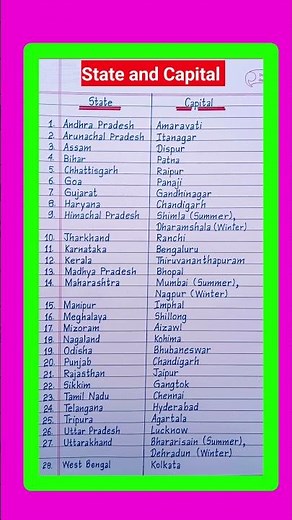 State and Capital
State Capital
1. Andhra Pradesh Amaravati
2. Arunachal Pradesh Itanagar
3. Assam Dispur
4. Bihar Patna
5. Chhattisgarh Raipur
6. Goa Panaji
7. Gujarat Gandhinagar
8. Haryana Chandigarh
9. Himachal Pradesh Shimla (Summer),
Dharamshala (Winter)
10. Jharkhand Ranchi
11. Karnataka Bengaluru
12. Kerala Thiruvananthapuram
13. Madhya Pradesh Bhopal
14. Maharashtra Mumbai (Summer),
Nagpur (Winter)
15. Manipur Imphal
16. Meghalaya Shillong
17. Mizoram Aizawl
18. Nagaland Kohima
19. Odisha Bhubaneswar
20. Punjab Chandigarh
21. Rajasthan Jaipur
22. Sikkim Gangtok
23. Tamil Nadu Chennai
24. Telangana Hyderabad
25. Tripura Agartala
26. Uttar Pradesh Lucknow
27. Uttarakhand Bhararisain (Summer),
Dehradun (Winter)
28. West Bengal Kolkata